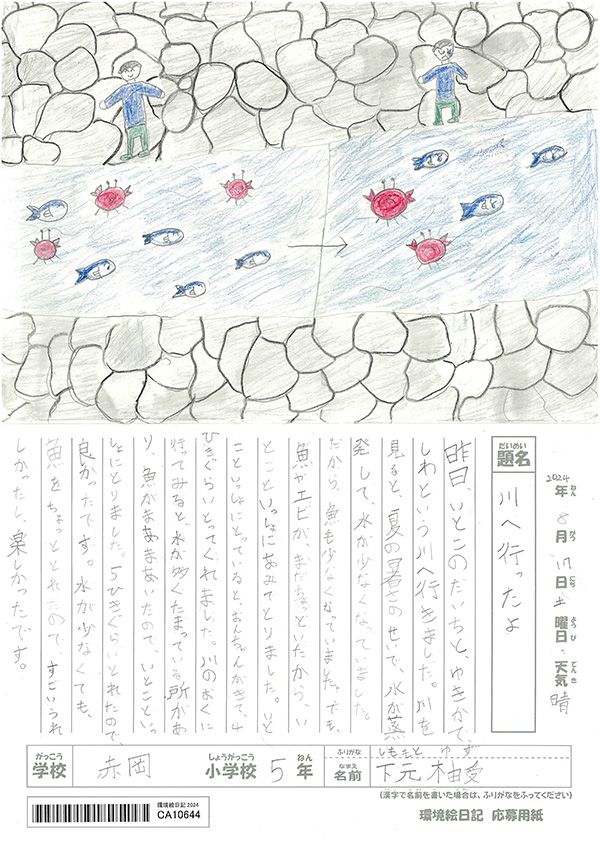 2024年ねん 8月がつ 17日にち 土曜日ようび 天気てんき 晴
だいめい
題名
川へ行ったよ
昨日、いとこのだいちと、ゆきかで、
しわという川へ行きました。川を
見ると、夏の暑さのせいで、水が蒸
発して、水が少なくなっていました。
だから、魚も少なくなっていました。でも、
魚がエビが、まだちょっといたから、い
とこといっしょにあみでとりました。いと
こといっしょにとっていると、おんちゃんがきて、4
ひきぐらいとってくれました。川のおくに
行ってみると、水が少くたまっている所があ
り、魚がまあまあいたので、いとこといっ
しょにとりました。5ひきぐらいとれたので、
良かったです。水が少なくても、
魚をちょっととれたので、すごいうれ
しかったし、楽しかったです。
がっこう
学校
赤岡
しょうがっこう
小学校
5
ねん
年
ふりがな
しももと ゆず
なまえ
名前
下元 柚受
(漢字で名前を書いた場合は、ふりがなをふってください)
環境絵日記 2024
CA10644
環境絵日記 応募用紙